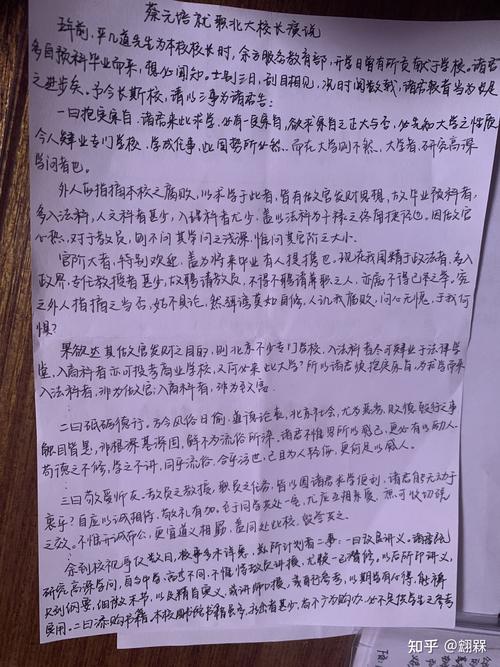 蔡元培就职北大校长演说
五年前,严几道先生为本校校长时,余方服务教育部,开学日曾有所贡献于学校。诸君
多自预科毕业而来,想必闻知。士别三日,刮目相见,况时阅数载,诸君较昔当为长足
之进步矣。予今长斯校,请以三事为诸君告:
一曰抱定宗旨。诸君来此求学,必有一定宗旨,欲求宗旨之正大与否,必先知大学之性质
今人肄业专门学校,学成任事,此固势所必然。而在大学则不然,大学者,研究高深
学问者也。
外人每指摘本校之腐败,以求学于此者,皆有做官发财思想,故毕业预科者,
多入法科,入文科者甚少,入理科者尤少,盖以法科为干禄之终南捷径也。因做官
心热,对于教员,则不问其学问之浅深,惟问其官阶之大小。
官阶大者,特别欢迎,盖为将来毕业有人提携也。现在我国精于政法者,多入
政界,专任教授者甚少,故聘请教员,不得不聘请兼职之人,亦属不得已之举。究
之外人指摘之当否,姑不具论,然弭谤莫如自修,人讥我腐败,问心无愧,于我何
惧?
果欲达其做官发财之目的,则北京不少专门学校,入法科者尽可肄业于法律学
堂,入商科者亦可投考商业学校,又何必来此大学?所以诸君须抱定宗旨,为求学而来
入法科者,非为做官;入商科者,非为致富。
二曰砥砺德行。方今风俗日偷,道德沦丧,北京社会,尤为恶劣,败德毁行之事
触目皆是,非根深基固,鲜不为流俗所染。诸君不惟思所以感己,更必有以励人。
苟德之不修,学之不讲,同乎流俗,合乎污世,己且为人轻侮,更何足以感人。
三曰敬爱师友。教员之教授,职员之任务,皆以图诸君求学便利,诸君能无动于
衷乎?自应以诚相待,敬礼有加。至于同学共处一室,尤应互相亲爱,庶可收切磋
之效。不惟开诚布公,更宜道义相勖,盖同处此校,毁誉共之。
余到校视事仅数日,校事多未详悉,兹所计划者二事:一曰改良讲义。诸君既
研究高深学问,自与中学、高等不同,不惟恃教员讲授,尤赖一己潜修。以后所印讲义,
只列纲要,细微末节,以及精旨奥义,或讲师口授,或自行参考,以期学有心得,能裨
实用。二曰添购书籍。本校图书馆书籍虽多,新出者甚少,苟不广为购办,必不足供学生之参考
知乎 @翧槑